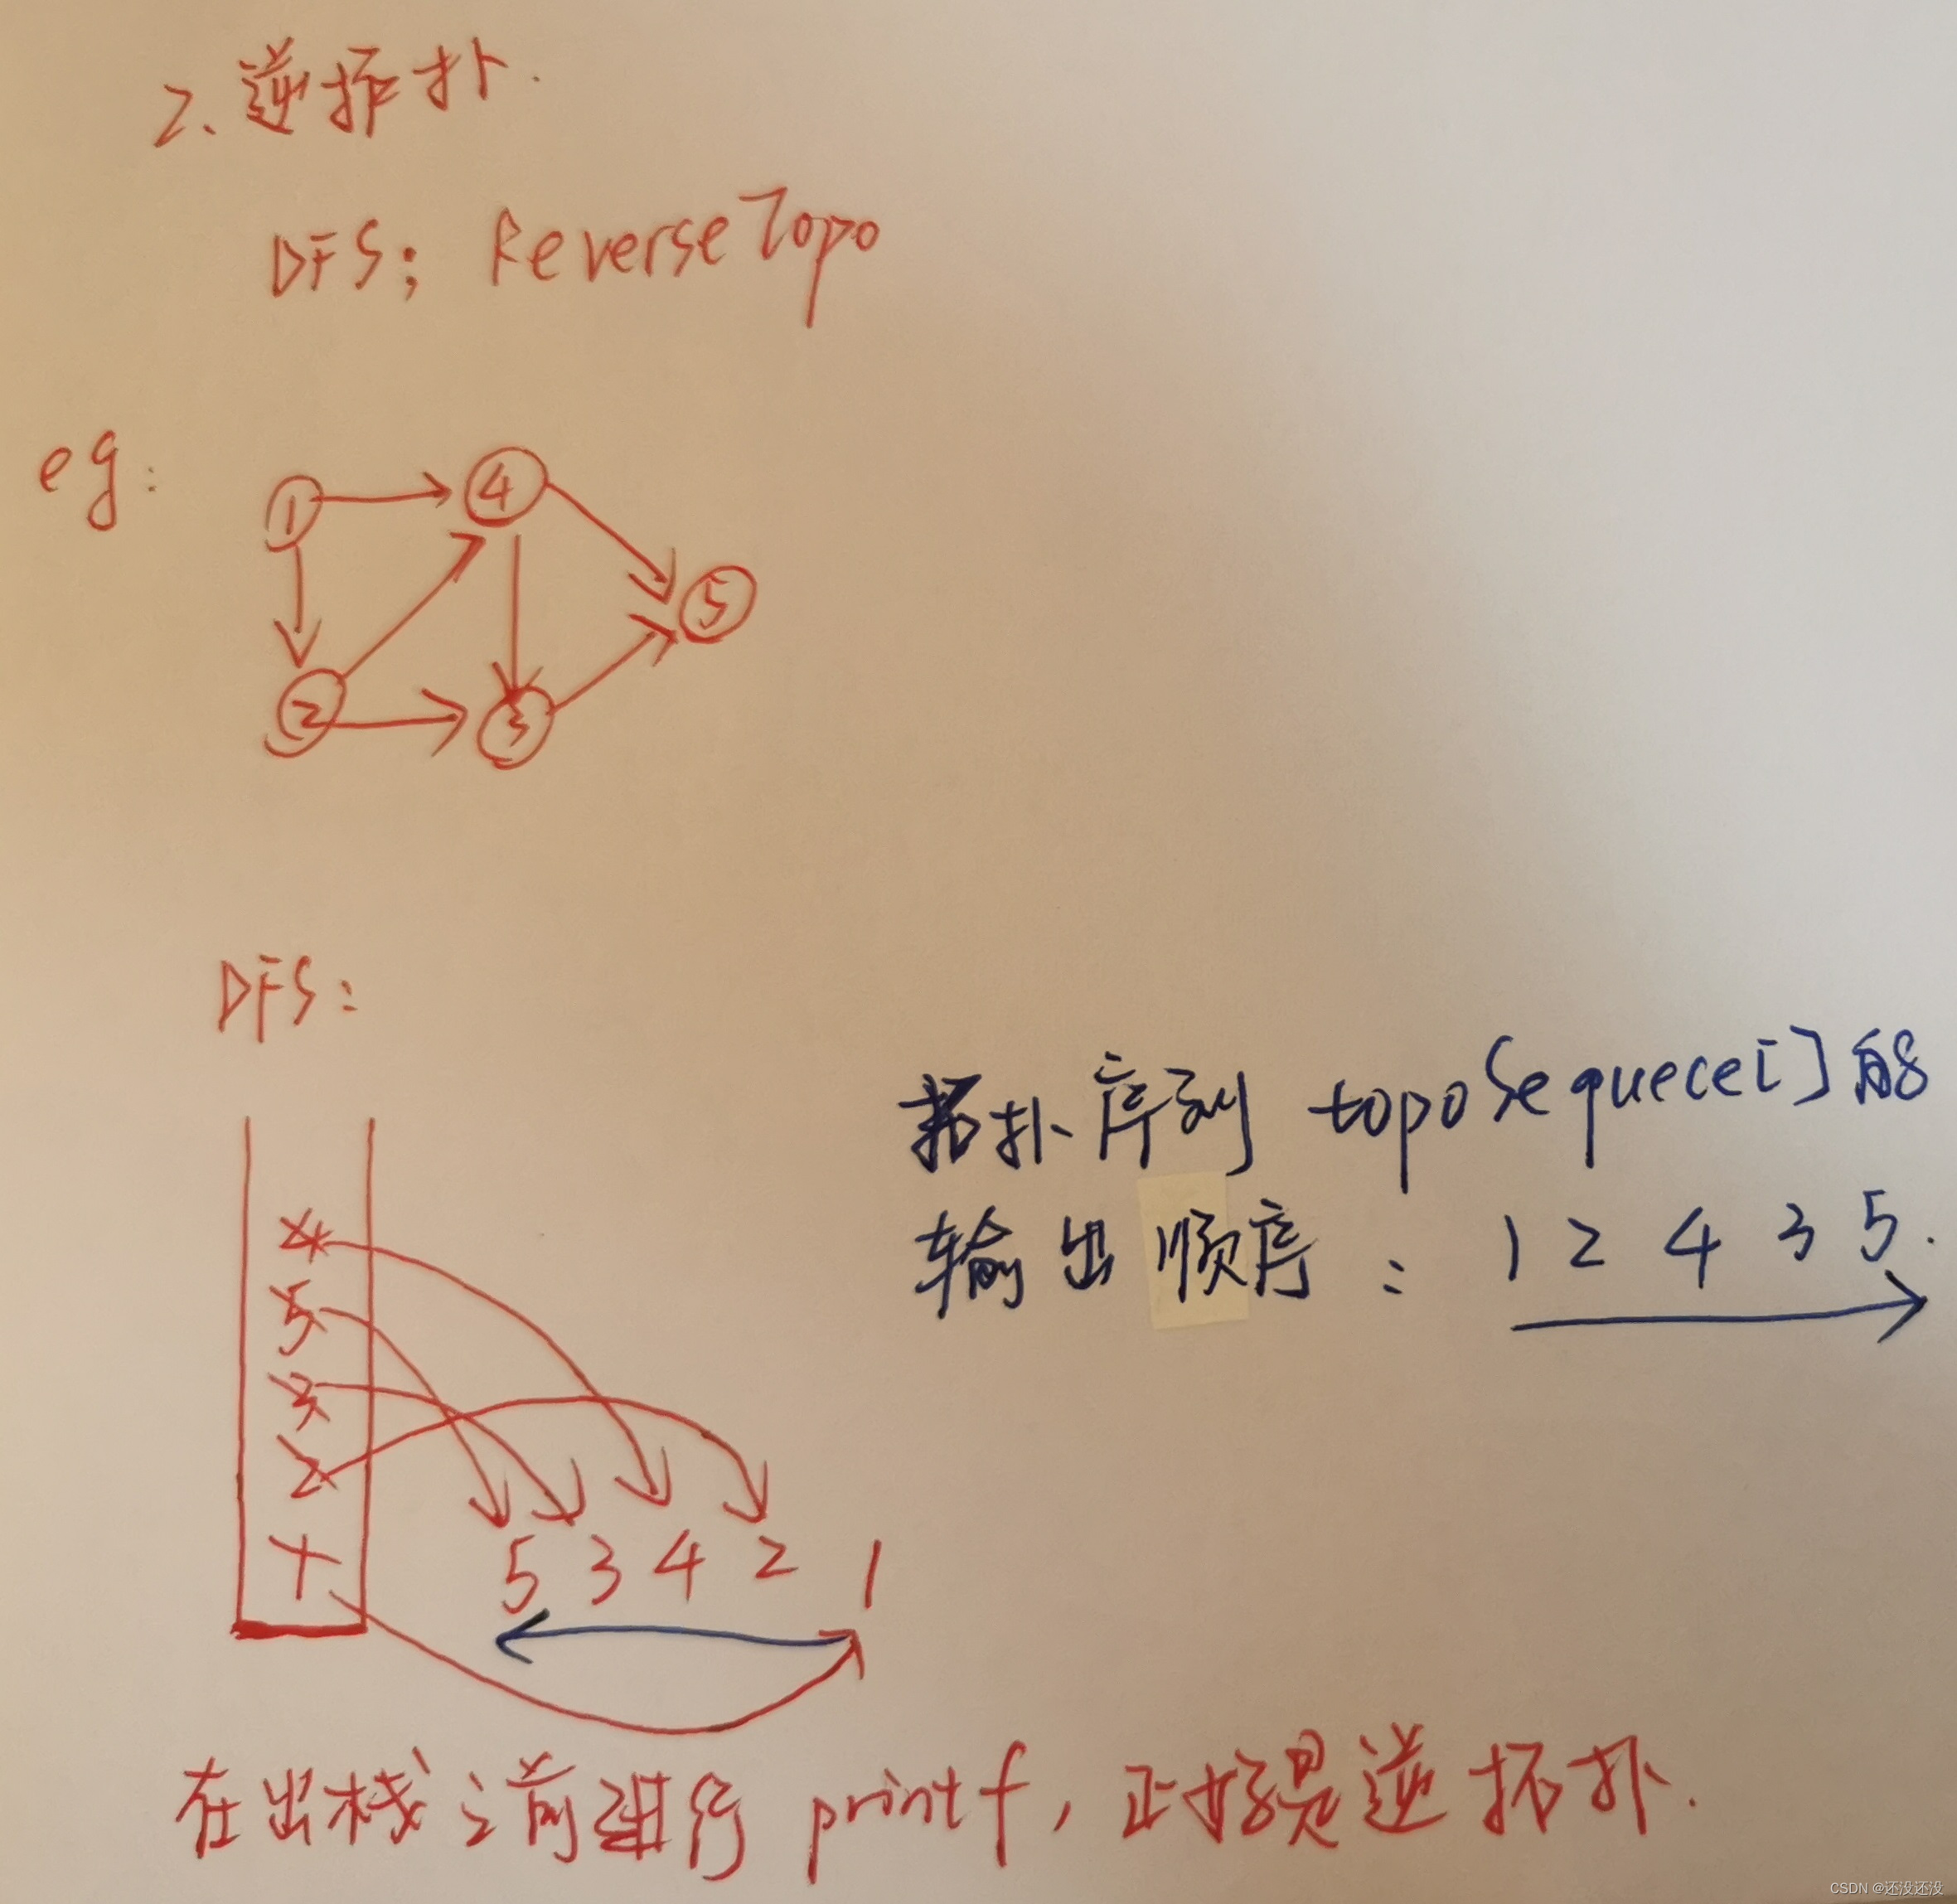 2、逆拓扑.
DFS; ReverseTopo
eg:
1 4
5
2 3
DFS:
拓扑序列 topoSequece[] 的
输出顺序: 1 2 4 3 5.
4
5
3
2
1
5 3 4 2 1
在出栈之前进行 printf, 正好是逆拓扑.
CSDN @还没还没